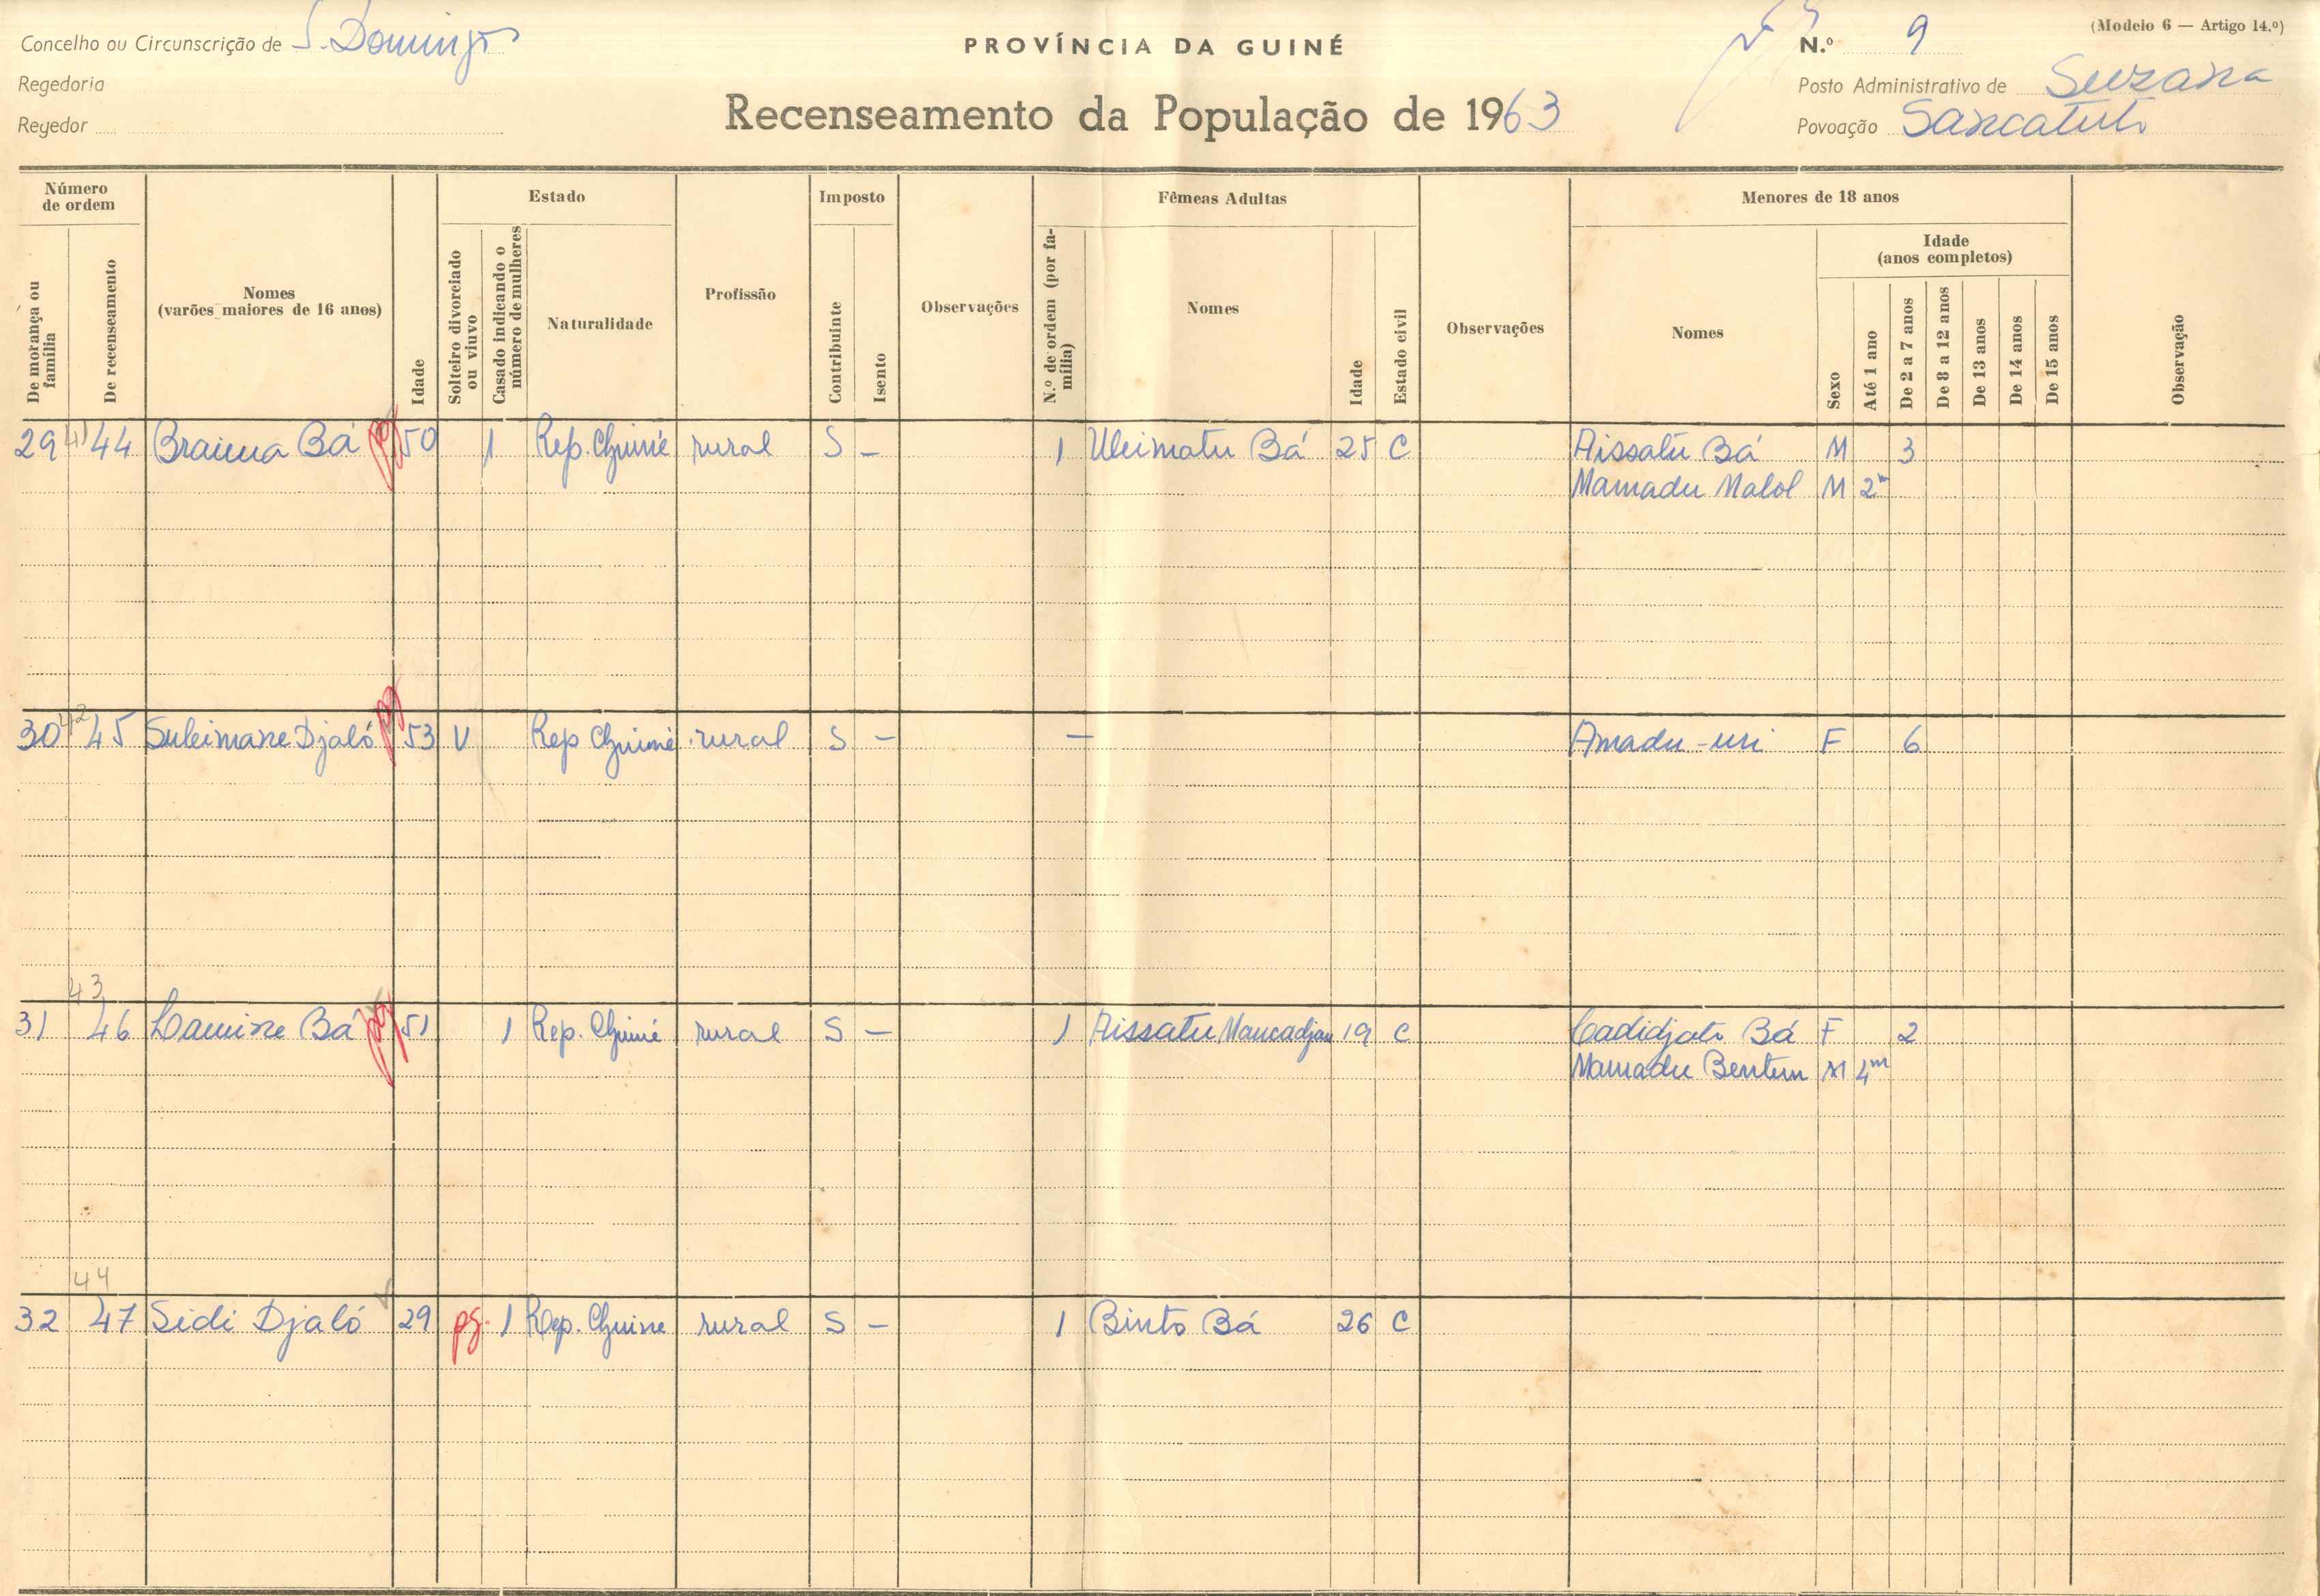 (Modelo 6 — Artigo 14.º)
Concelho ou Circunscrição de S. Domingos
PROVÍNCIA DA GUINÉ
N.º 9
Regedoria
Posto Administrativo de Suzana
Regedor
Recenseamento da População de 1963
Povoação Sancatuto
Número de ordem
Estado
Imposto
Fêmeas Adultas
Menores de 18 anos
De morança ou família
De recenseamento
Nomes (varões maiores de 16 anos)
Idade
Solteiro divorciado ou viuvo
Casado indicando o número de mulheres
Naturalidade
Profissão
Contribuinte
Isento
Observações
N.º de ordem (por família)
Nomes
Idade
Estado civil
Observações
Nomes
Sexo
Idade (anos completos)
Até 1 ano
De 2 a 7 anos
De 8 a 12 anos
De 13 anos
De 14 anos
De 15 anos
Observação
29 41 44 Braima Bá pg 50 1 Rep. Guiné rural S – 1 Uleimatu Bá 25 C Aissatu Bá M 3
Mamadu Malol M 2m
30 42 45 Suleimane Djaló pg 53 V Rep Guiné rural S – – Amadu-uri F 6
43
31 46 Lamine Bá pg 51 1 Rep. Guiné rural S – 1 Aissatu Mancadjau 19 C Cadidjato Bá F 2
Mamadu Bentum M 4m
44
32 47 Sidi Djaló 29 pg. 1 Rep. Guine rural S – 1 Binto Bá 26 C